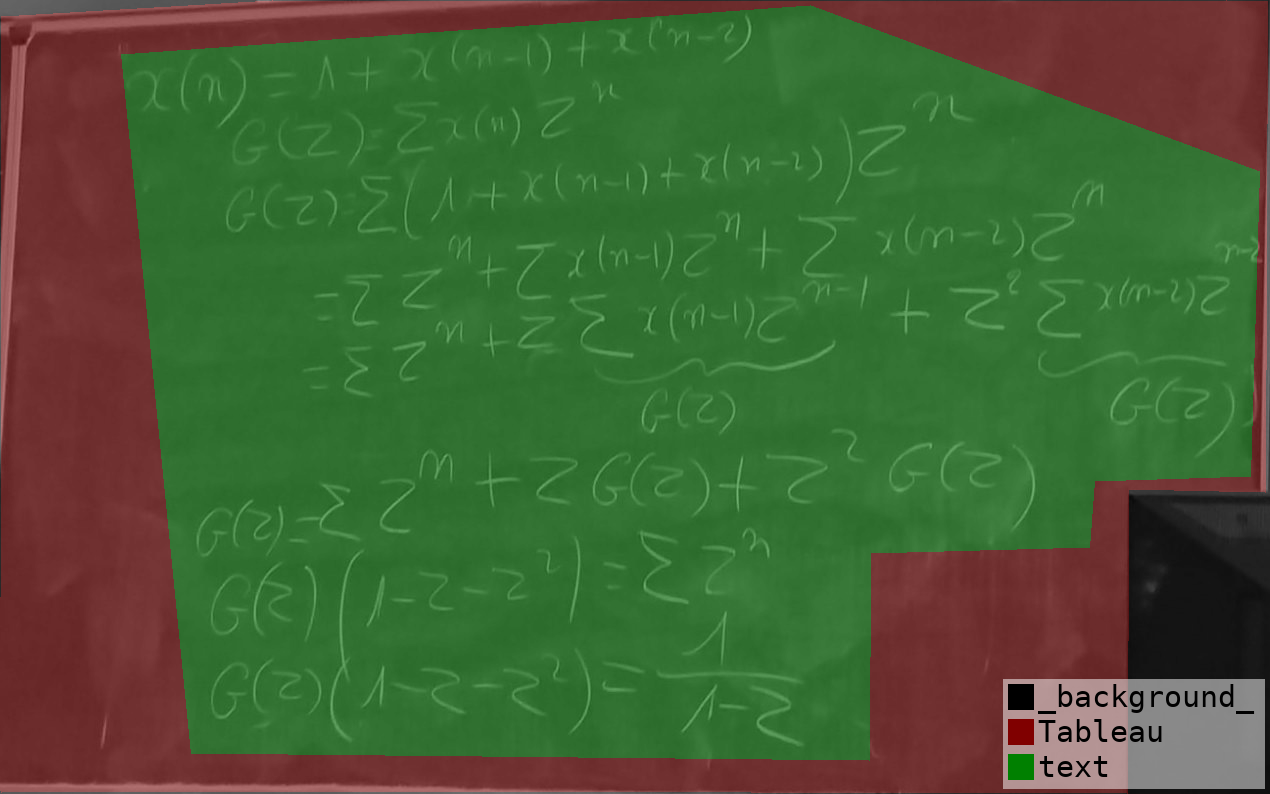 x(n) = 1 + x(n-1) + x(n-2)
G(Z) = Σ x(n) Z^n
G(Z) = Σ (1 + x(n-1) + x(n-2)) Z^n
= Σ Z^n + Σ x(n-1) Z^n + Σ x(n-2) Z^n
= Σ Z^n + Z Σ x(n-1) Z^n-1 + Z^2 Σ x(n-2) Z^n-2
G(Z) G(Z)
G(Z) = Σ Z^n + Z G(Z) + Z^2 G(Z)
G(Z) (1-Z-Z^2) = Σ Z^n
G(Z) (1-Z-Z^2) = 1/(1-Z)
_background_
Tableau
text